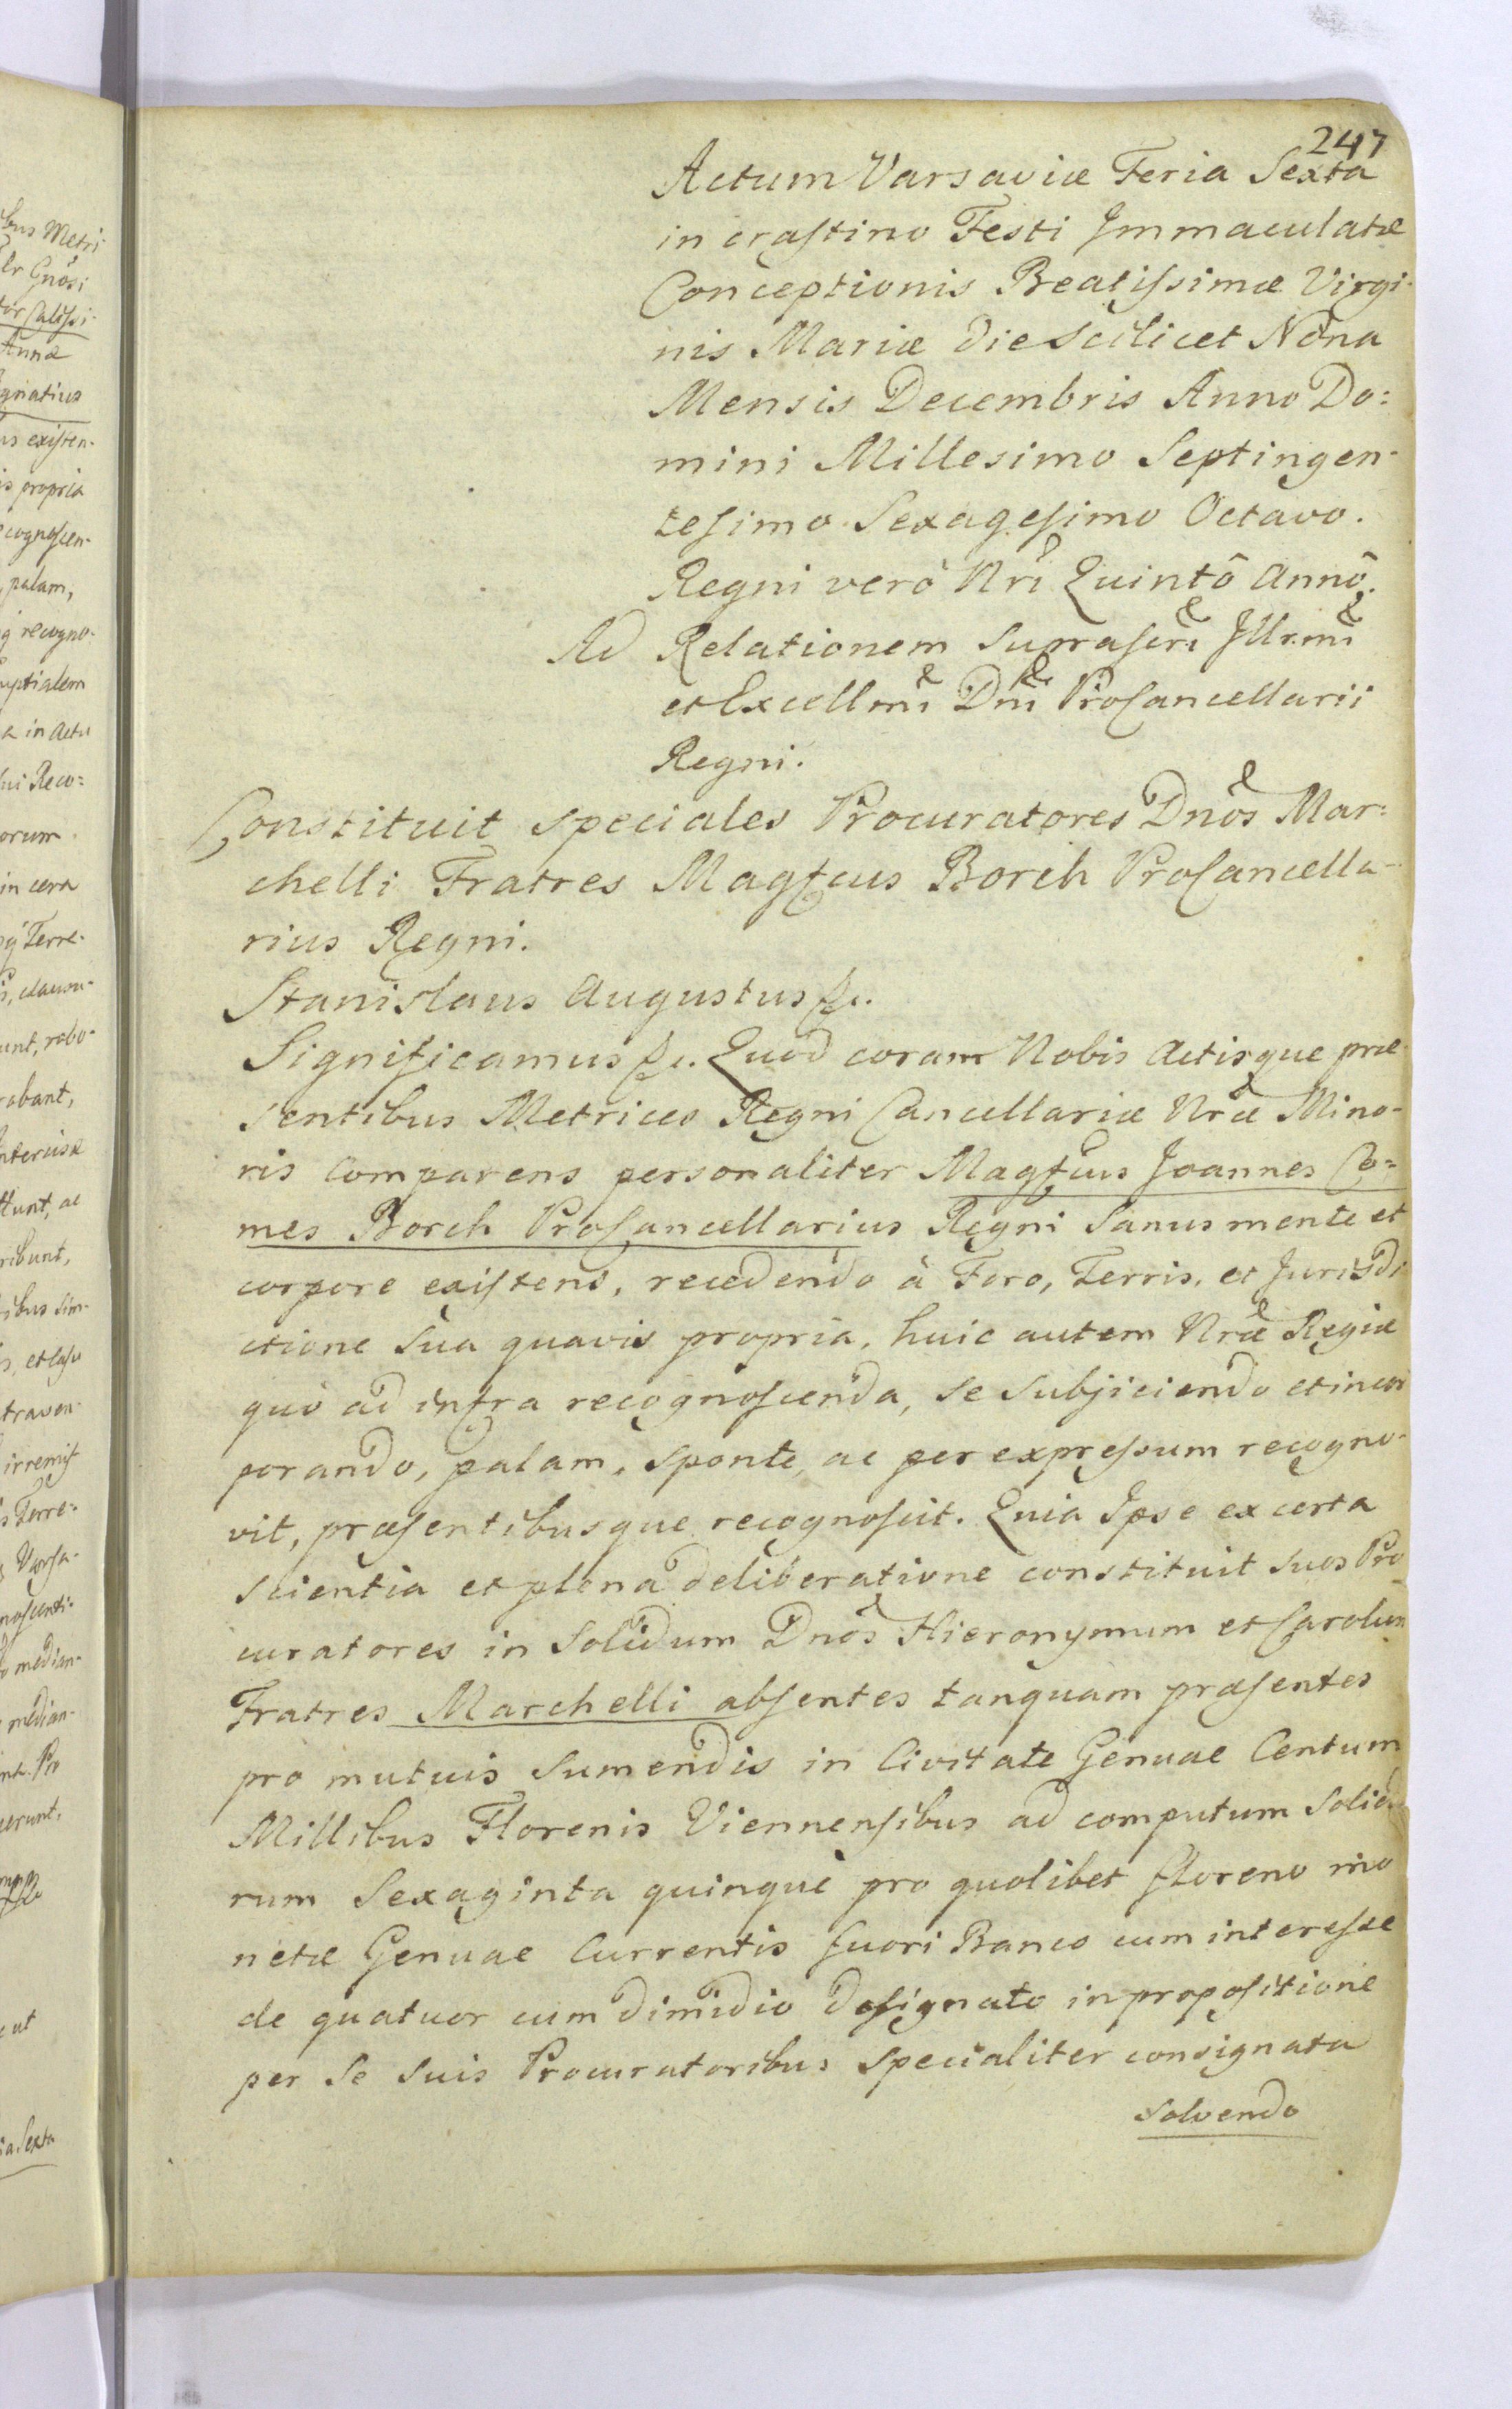 247
Actum Varsaviæ Feria Sexta
in crastino Festi Immaculatæ
Conceptionis Beatissimæ Virgi-
nis Mariæ die scilicet Nona
Mensis Decembris Anno Do=
mini Millesimo Septingen-
tesimo Sexagesimo Octavo.
Regni verò Nri Quintô Annô.
Ad Relationem suprascri Illrmi
et Excellmi Dni ProCancellarii
Regni.
Constituit speciales Procuratores Dnos Mar=
chelli Fratres Magfcus Borch ProCancella-
rius Regni.
Stanislaus Augustus &c.
Significamus &c. Quod coram Nobis Actisque præ-
sentibus Metrices Regni Cancellariæ Nræ Mino-
ris Comparens personaliter Magfcus Joannes Co=
mes Borch ProCancellarius Regni Sanus mente et
corpore existens, recedendo à Foro, Terris, et Jurisdi
ctione sua quavis propria, huic autem Nræ Regiæ
quò ad infra recognoscenda, se subjiciendo et incor
porando, palam, sponte, ac per expressum recogno-
vit, præsentibusque recognoscit. Quia Ipse ex certa
scientia et plena deliberatione constituit suos Pro
curatores in Solidum Dnos Hieronymum et Carolum
Fratres Marchelli absentes tanquam præsentes
pro mutuis sumendis in Civitate Genuae Centum
Millibus Florenis Viennensibus ad computum Solido
rum Sexaginta quinque pro quolibet floreno mo
netæ Genuae Currentis fuori Banco cum interesse
de quatuor cum dimidio designato in propositione
per se suis Procuratoribus specialiter consignata
solvendo
ibus Metri-
Gnosi
Calissi-
Annæ
gnatius
us existen-
is propria
ecognoscen-
palam,
recogno-
uptialem
a in Actu
Reco=
orum
in cera
Terre-
unt, robo-
rabant,
ntercisæ
ttunt, ac
ribunt,
ibus sim-
, et casu
traven-
irremis
s Terre=
Varsa-
noscenti-
median-
median-
Pro
erunt,
ut
ia Sexta